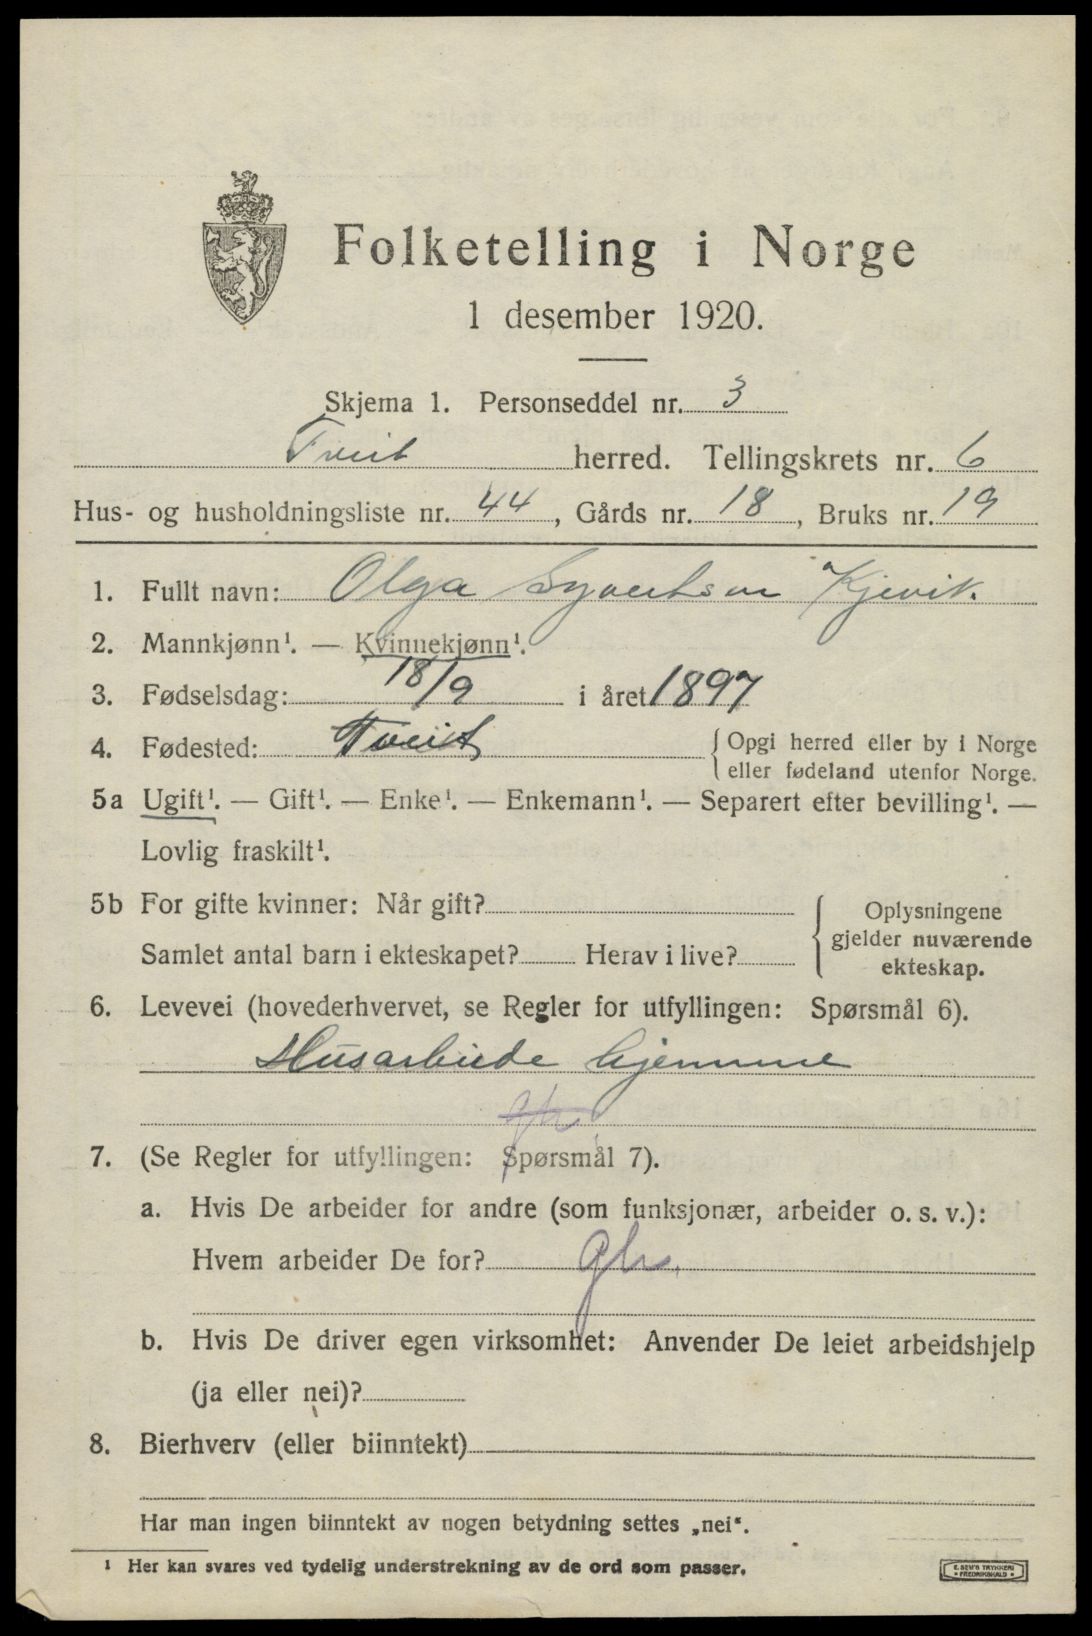 Folketelling i Norge
1 desember 1920.
Skjema 1. Personseddel nr. 3
Tveit herred. Tellingskrets nr. 6
Hus- og husholdningsliste nr. 44, Gårds nr. 18, Bruks nr. 19
1. Fullt navn: Olga Syvertsen Kjevik.
2. Mannkjønn¹. — Kvinnekjønn¹.
3. Fødselsdag: 18/9 i året 1897
4. Fødested: Tveit { Opgi herred eller by i Norge
eller fødeland utenfor Norge.
5a Ugift¹. — Gift¹. — Enke¹. — Enkemann¹. — Separert efter bevilling¹. —
Lovlig fraskilt¹.
5b For gifte kvinner: Når gift? { Oplysningene
gjelder nuværende
Samlet antal barn i ekteskapet? Herav i live?
ekteskap.
6. Levevei (hovederhvervet, se Regler for utfyllingen: Spørsmål 6).
Husarbeide hjemme
7. (Se Regler for utfyllingen: Spørsmål 7).
a. Hvis De arbeider for andre (som funksjonær, arbeider o. s. v.):
Hvem arbeider De for?
b. Hvis De driver egen virksomhet: Anvender De leiet arbeidshjelp
(ja eller nei)?
8. Bierhverv (eller biinntekt)
Har man ingen biinntekt av nogen betydning settes „nei“.
¹ Her kan svares ved tydelig understrekning av de ord som passer.
E. SEM'S TRYKKERI
FREDRIKSHALD